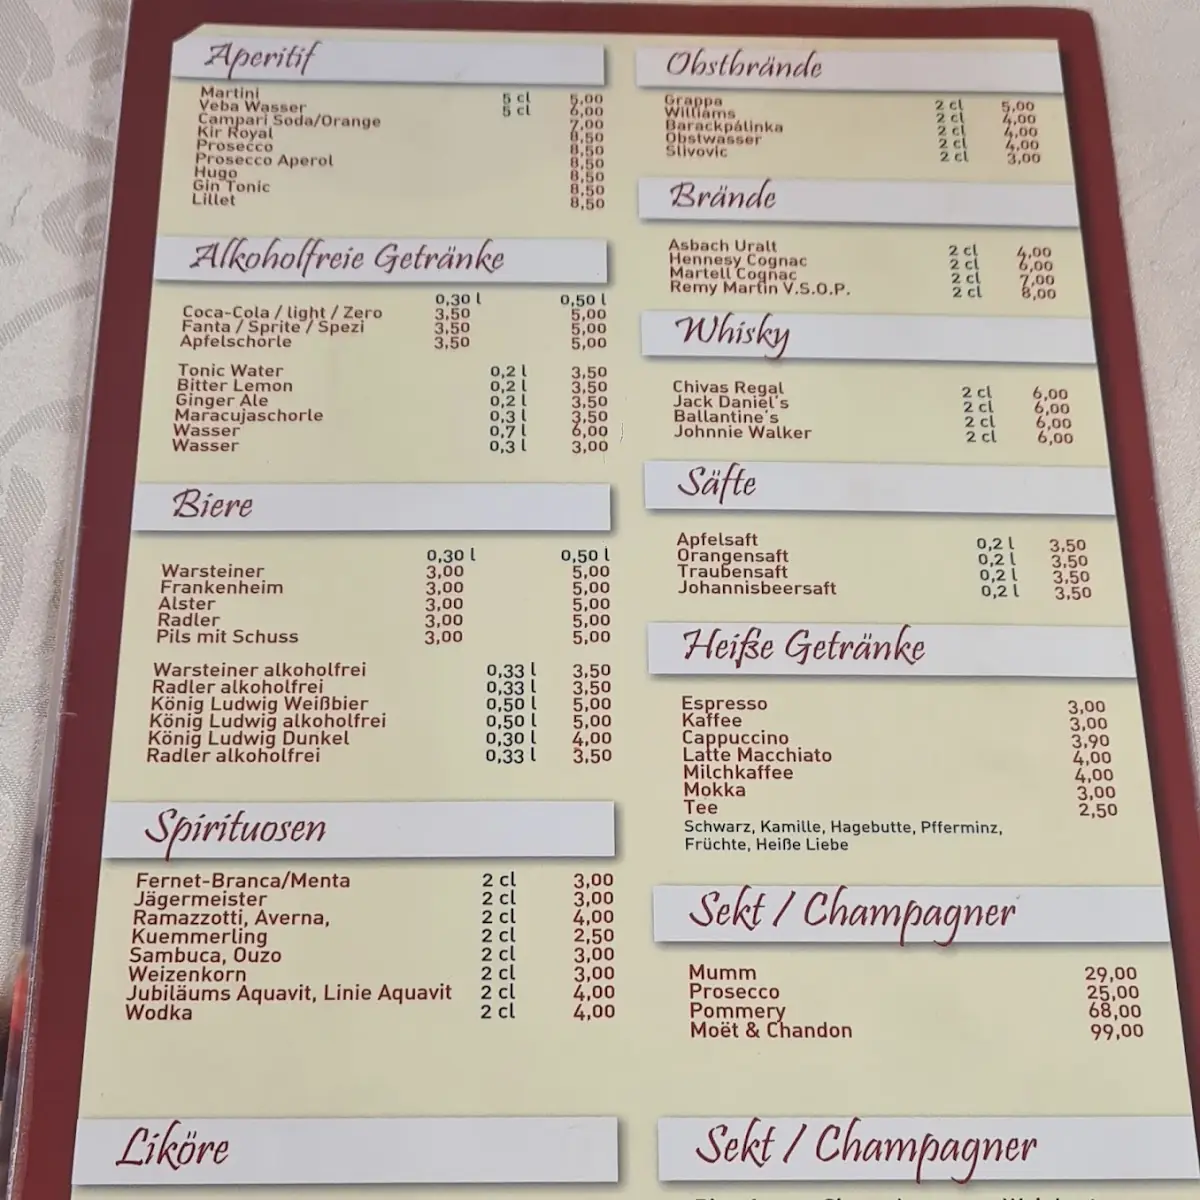 Aperitif
Martini 5 cl 5,00
Veba Wasser 5 cl 6,00
Campari Soda/Orange 7,00
Kir Royal 8,50
Prosecco 8,50
Prosecco Aperol 8,50
Hugo 8,50
Gin Tonic 8,50
Lillet 8,50
Alkoholfreie Getränke
0,30 l 0,50 l
Coca-Cola / light / Zero 3,50 5,00
Fanta / Sprite / Spezi 3,50 5,00
Apfelschorle 3,50 5,00
Tonic Water 0,2 l 3,50
Bitter Lemon 0,2 l 3,50
Ginger Ale 0,2 l 3,50
Maracujaschorle 0,3 l 3,50
Wasser 0,7 l 6,00
Wasser 0,3 l 3,00
Biere
0,30 l 0,50 l
Warsteiner 3,00 5,00
Frankenheim 3,00 5,00
Alster 3,00 5,00
Radler 3,00 5,00
Pils mit Schuss 3,00 5,00
Warsteiner alkoholfrei 0,33 l 3,50
Radler alkoholfrei 0,33 l 3,50
König Ludwig Weißbier 0,50 l 5,00
König Ludwig alkoholfrei 0,50 l 5,00
König Ludwig Dunkel 0,30 l 4,00
Radler alkoholfrei 0,33 l 3,50
Spirituosen
Fernet-Branca/Menta 2 cl 3,00
Jägermeister 2 cl 3,00
Ramazzotti, Averna, 2 cl 4,00
Kuemmerling 2 cl 2,50
Sambuca, Ouzo 2 cl 3,00
Weizenkorn 2 cl 3,00
Jubiläums Aquavit, Linie Aquavit 2 cl 4,00
Wodka 2 cl 4,00
Liköre
Obstbrände
Grappa 2 cl 5,00
Williams 2 cl 4,00
Barackpálinka 2 cl 4,00
Obstwasser 2 cl 4,00
Slivovic 2 cl 3,00
Brände
Asbach Uralt 2 cl 4,00
Hennesy Cognac 2 cl 6,00
Martell Cognac 2 cl 7,00
Remy Martin V.S.O.P. 2 cl 8,00
Whisky
Chivas Regal 2 cl 6,00
Jack Daniel's 2 cl 6,00
Ballantine's 2 cl 6,00
Johnnie Walker 2 cl 6,00
Säfte
Apfelsaft 0,2 l 3,50
Orangensaft 0,2 l 3,50
Traubensaft 0,2 l 3,50
Johannisbeersaft 0,2 l 3,50
Heiße Getränke
Espresso 3,00
Kaffee 3,00
Cappuccino 3,90
Latte Macchiato 4,00
Milchkaffee 4,00
Mokka 3,00
Tee 2,50
Schwarz, Kamille, Hagebutte, Pfferminz,
Früchte, Heiße Liebe
Sekt / Champagner
Mumm 29,00
Prosecco 25,00
Pommery 68,00
Moët & Chandon 99,00
Sekt / Champagner